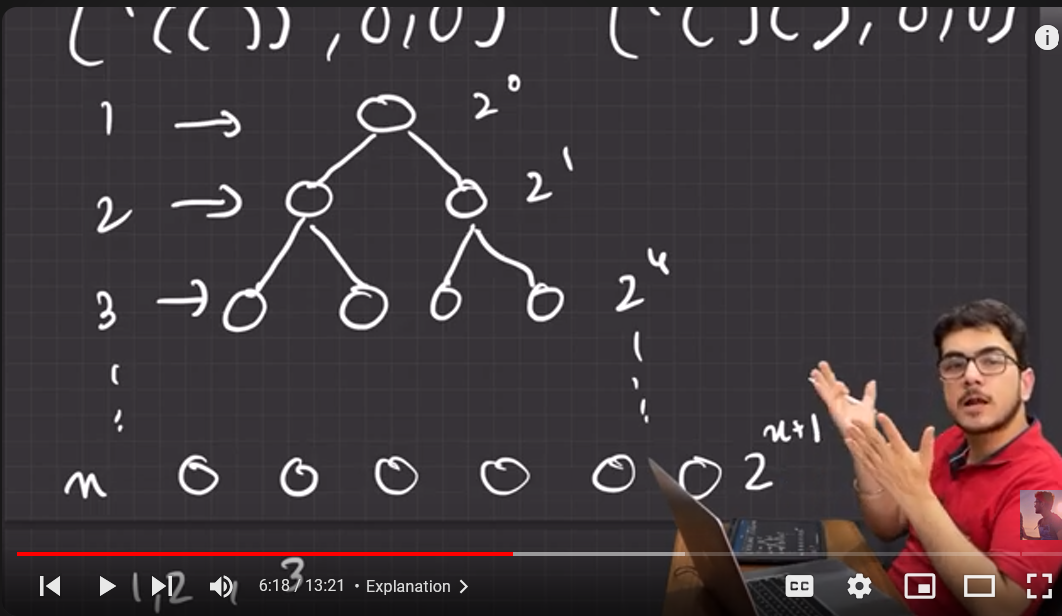 ('(()), 0,0) ('()(), 0,0)
1 → 2⁰
2 → 2¹
3 → 2⁴
n 2ⁿ⁺¹
1,2, 3
6:18 / 13:21 • Explanation >
CC